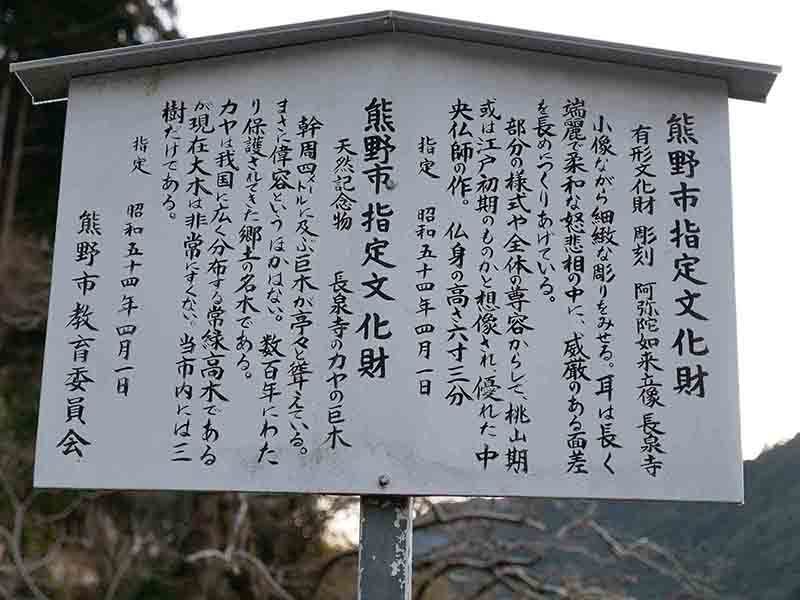 熊野市指定文化財
有形文化財 彫刻 阿弥陀如来立像 長泉寺
小像ながら細緻な彫りをみせる。耳は長く
端麗で柔和な怒悲相の中に、威厳のある面差
を長めにつくりあげている。
部分の様式や全体の尊容からして、桃山期
或は江戸初期のものかと想像され、優れた中
央仏師の作。 仏身の高さ六寸三分
指定 昭和五十四年四月一日
熊野市指定文化財
天然記念物 長泉寺のカヤの巨木
幹周四メートルに及ぶ巨木が亭々と聳えている。
まさに偉容というほかはない。数百年にわた
り保護されてきた郷土の名木である。
カヤは我国に広く分布する常緑高木である
が現在大木は非常にすくない。当市内には三
樹だけである。
指定 昭和五十四年四月一日
熊野市教育委員会